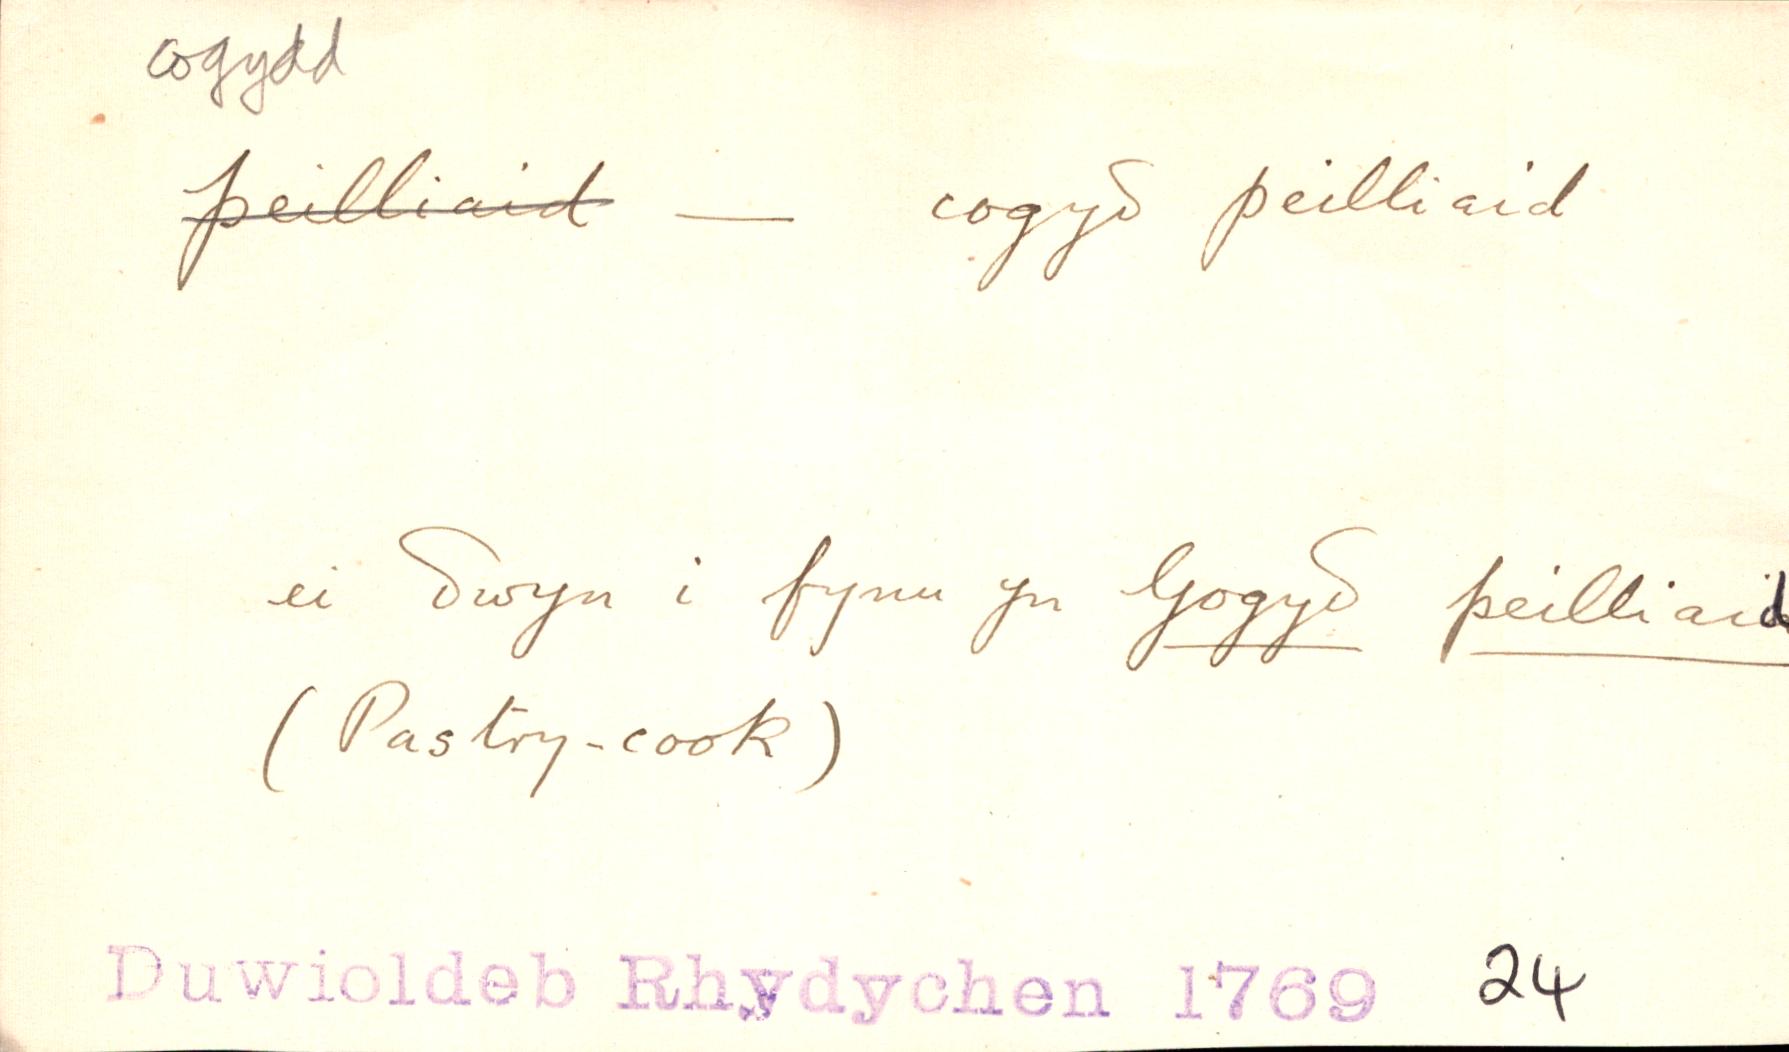 cogydd
peilliaid — cogyδ peilliaid
ei δwyn i fynu yn Gogyδ peilliaid
(Pastry-cook)
Duwioldeb Rhydychen 1769 24